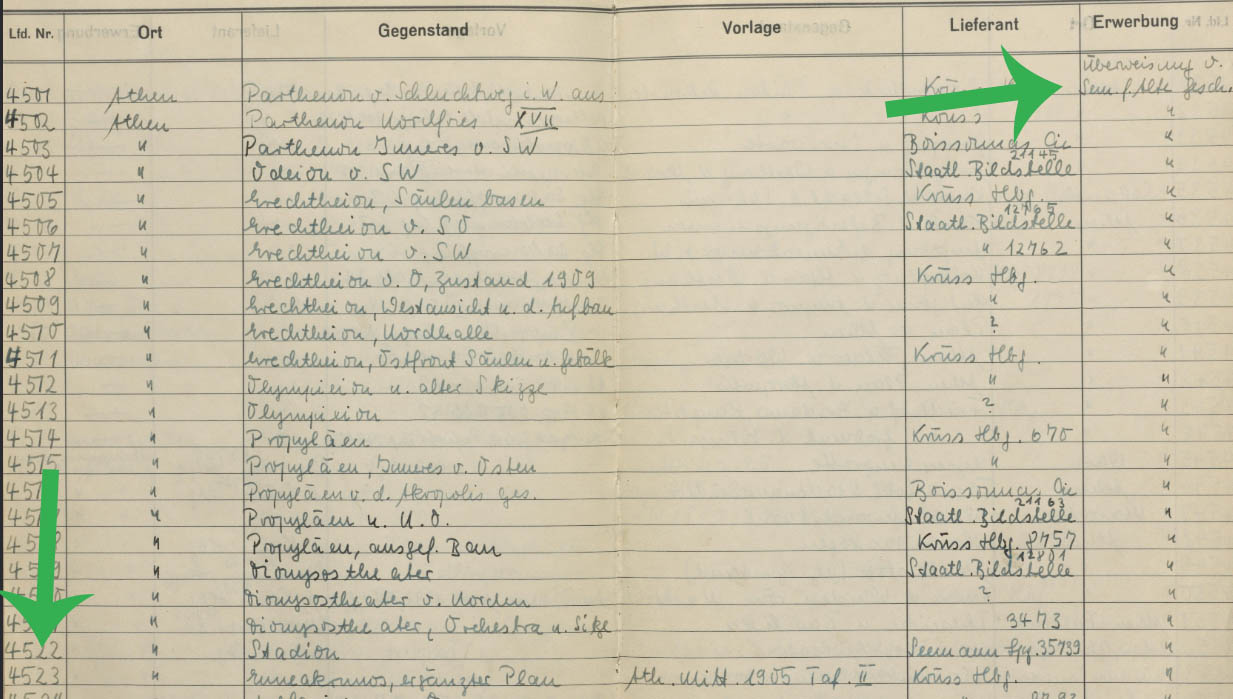 Lfd. Nr. Ort Gegenstand Vorlage Lieferant Erwerbung
Überweisung v.
4501 Athen Parthenon v. Schluchtweg i. W. aus Sem. f. Alte Gesch.
4502 Athen Parthenon Nordfries XVII Krüss "
4503 " Parthenon Inneres v. SW Boissonnas Cie "
4504 " Odeion v. SW Staatl. Bildstelle 21145 "
4505 " Erechtheion, Säulenbasen Krüss Hbg. "
4506 " Erechtheion v. SO Staatl. Bildstelle 12765 "
4507 " Erechtheion v. SW " 12762 "
4508 " Erechtheion v. O, Zustand 1909 Krüss Hbg. "
4509 " Erechtheion, Westansicht n. d. Aufbau " "
4510 " Erechtheion, Nordhalle ? "
4511 " Erechtheion, Ostfront Säulen u. Gebälk Krüss Hbg. "
4512 " Olympieion n. alter Skizze " "
4513 " Olympieion ? "
4514 " Propyläen Krüss Hbg. 670 "
4515 " Propyläen, Inneres v. Osten " "
" Propyläen v. d. Akropolis ges. Boissonnas Cie "
" Propyläen n. N.O. Staatl. Bildstelle 21163 "
" Propyläen, ausgef. Bau Krüss Hbg. 8757 "
" Dionysostheater Staatl. Bildstelle 12801 "
" Dionysostheater v. Norden ? "
" Dionysostheater, Orchestra u. Sitze 3473 "
4522 " Stadion Seemann Lpg. 35739 "
4523 " Enneakrunos, ergänzter Plan Ath. Mitt. 1905 Taf. II Krüss Hbg. "